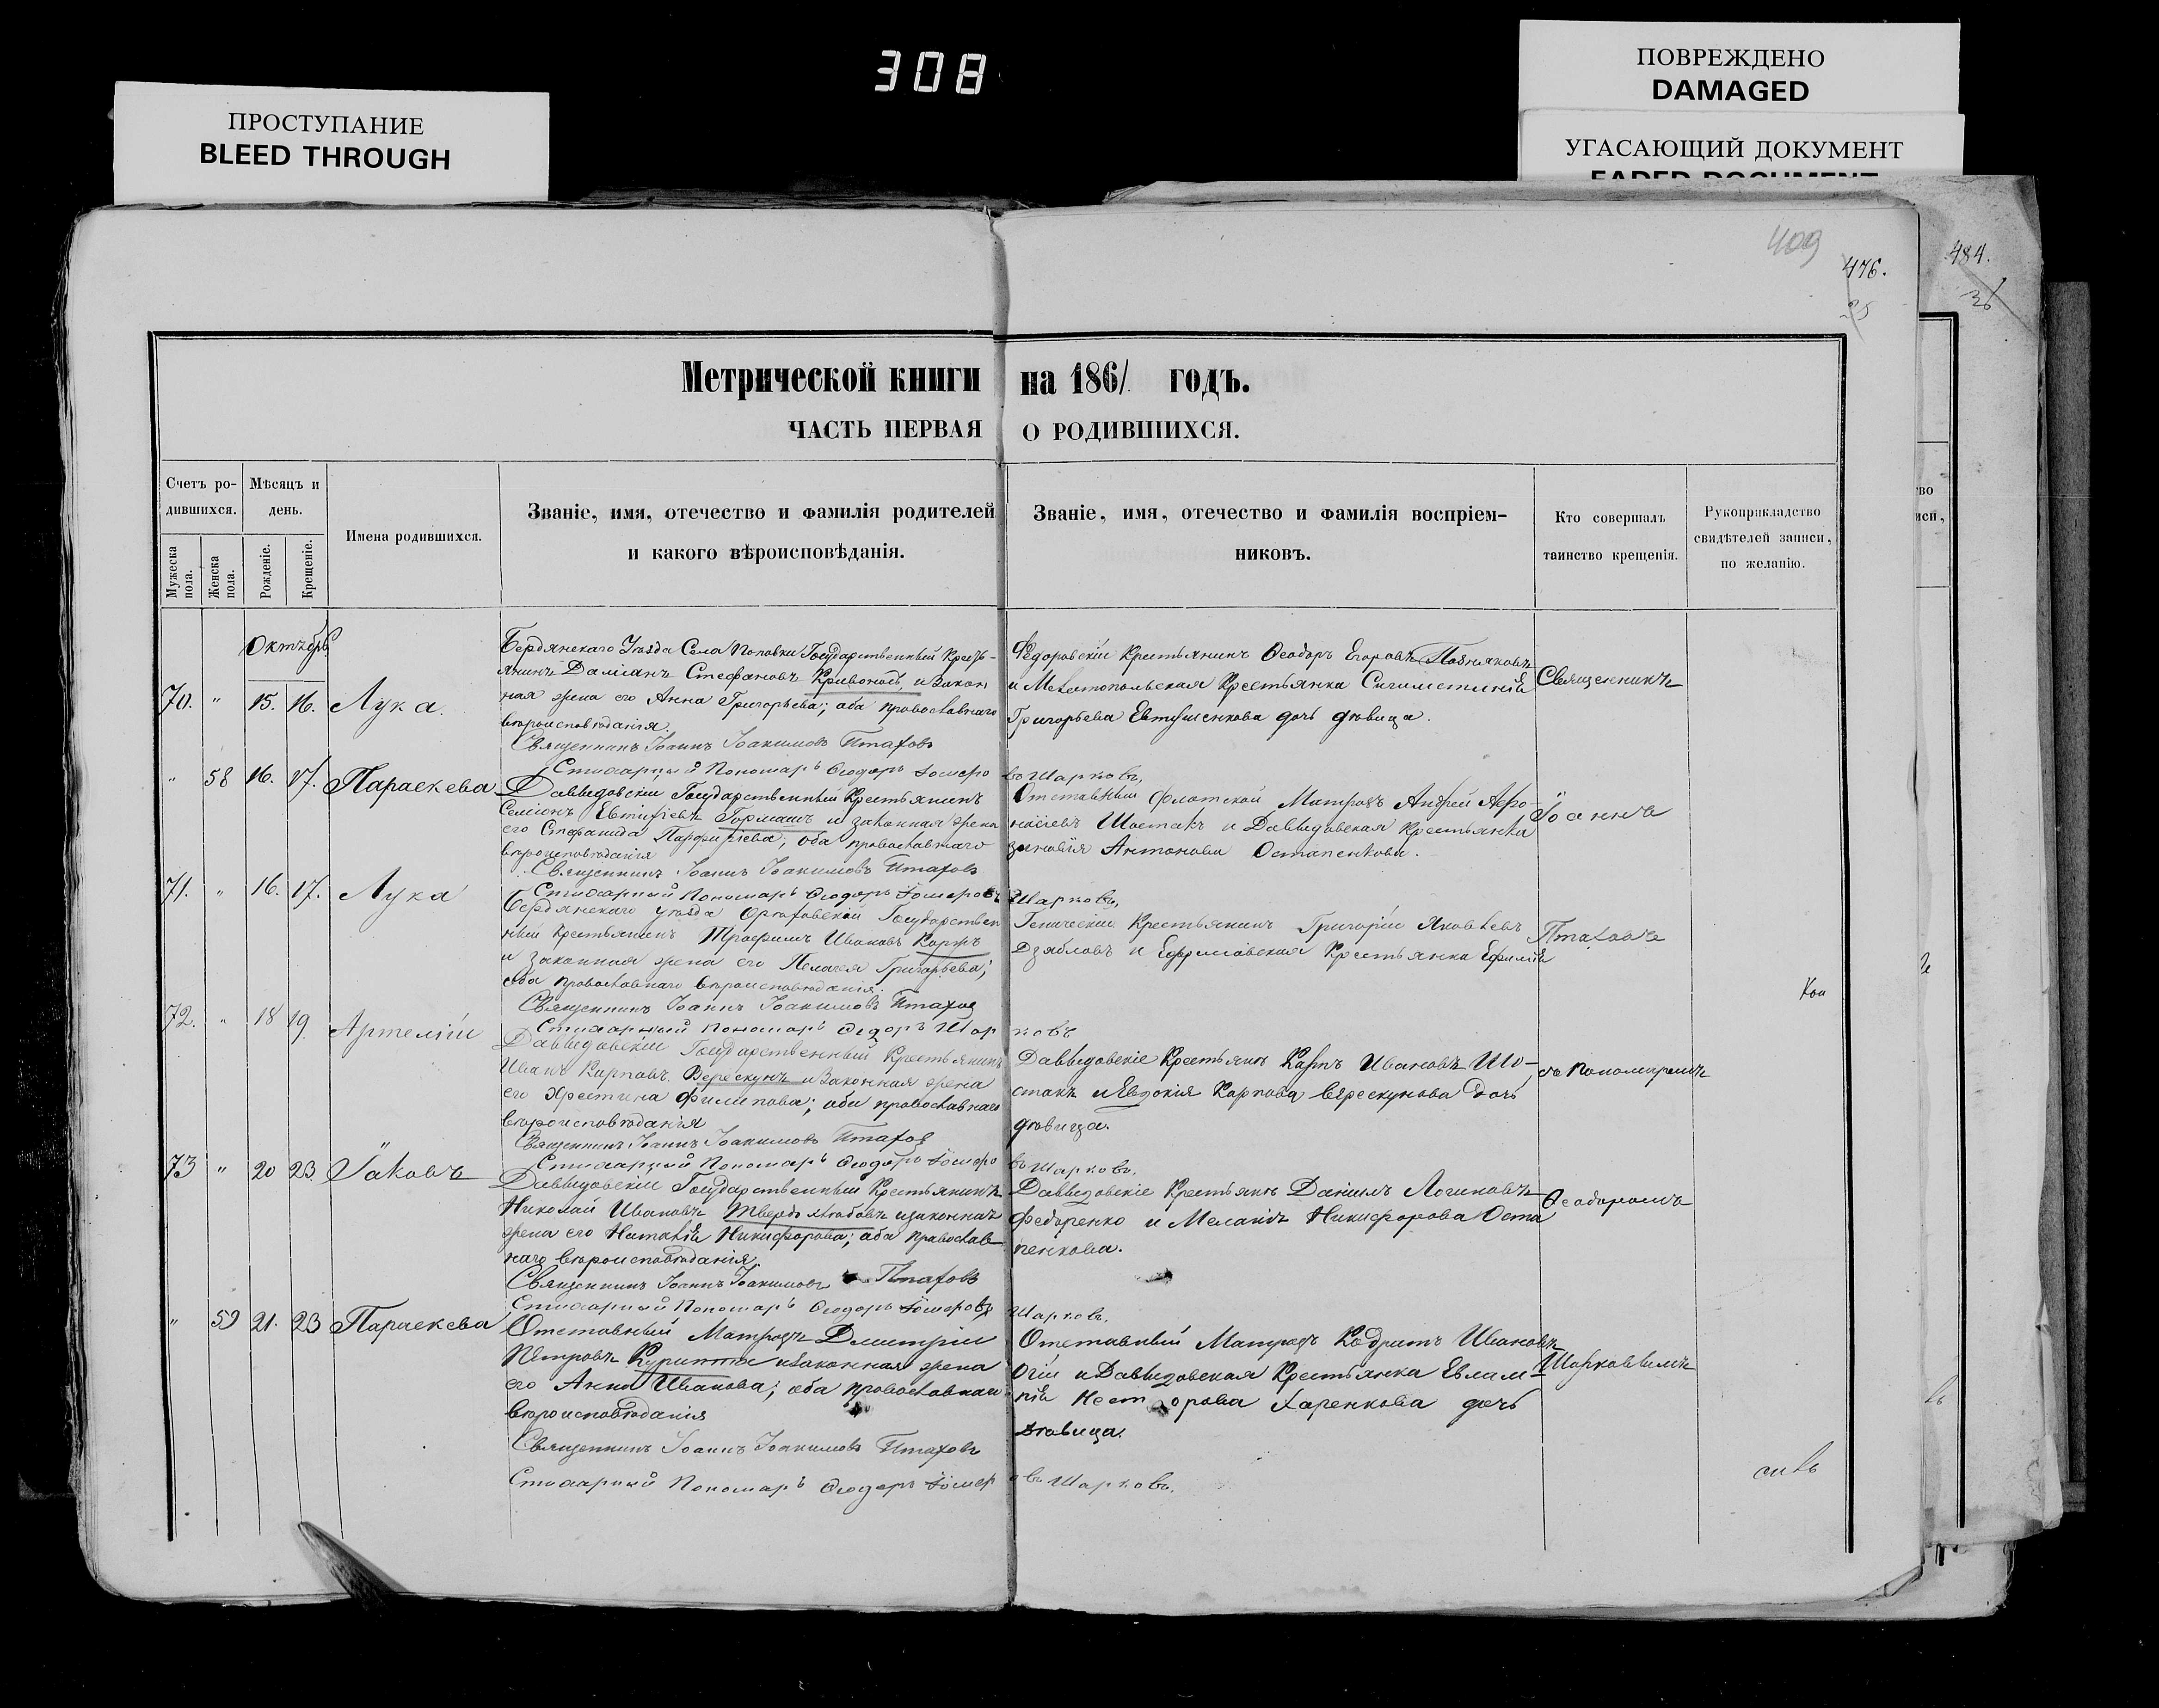 308
ПРОСТУПАНИЕ
BLEED THROUGH
ПОВРЕЖДЕНО
DAMAGED
УГАСАЮЩИЙ ДОКУМЕНТ
FADED DOCUMENT
409
476.
25
484.
36
Метрической книги на 1861 годъ.
ЧАСТЬ ПЕРВАЯ О РОДИВШИХСЯ.
Счетъ ро-
дившихся.
Мужеска пола.
Женска пола.
Мѣсяцъ и
день.
Рожденіе.
Крещеніе.
Имена родившихся.
Званіе, имя, отечество и фамилія родителей
и какого вѣроисповѣданія.
Званіе, имя, отечество и фамилія воспріем-
никовъ.
Кто совершалъ
таинство крещенія.
Рукоприкладство
свидѣтелей записи,
по желанію.
Октябрь
70. " 15. 16. Лука.
Бердянскаго Уѣзда Села Поповки Государственный Кресть-
янинъ Даміанъ Стефановъ Кривоносъ, и закон
ная жена его Анна Григорьева; оба православнаго
вѣроисповѣданія.
Священникъ Іоаннъ Іоакимовъ Птаховъ
Стихарный Пономарь Ѳеодоръ
Шарковъ.
Ѳедоровскій Крестьянинъ Ѳеодоръ Егоровъ Позняковъ
и Мелитопольская Крестьянка
Григорьева Евтушенкова дочь дѣвица.
Священникъ
" 58 16. 17. Параскева
Давыдовскій Государственный Крестьянинъ
Семіонъ Евтифіевъ Горманъ и законная жена
его Стефанида Парфиріева; оба православнаго
вѣроисповѣданія
Священникъ Іоаннъ Іоакимовъ Птаховъ
Стихарный Пономарь Ѳеодоръ
Шарковъ,
Отставный Флотской Матрозъ Андрей Афо-
насіевъ Шостакъ и Давыдовская Крестьянка
Зиновія Антонова Остапенкова.
Іоаннъ
71. " 16. 17. Лука
Бердянскаго уѣзда Орѣховскій Государствен
ный Крестьянинъ Трофимъ Ивановъ Коржъ
и законная жена его Пелагея Григорьева;
оба православнаго вѣроисповѣданія.
Священникъ Іоаннъ Іоакимовъ Птаховъ
Стихарный Пономарь Ѳедоръ Шарковъ
Геническій Крестьянинъ Григорій Яковлевъ
Дзябловъ и Ефремовская Крестьянка Ефимія
Птаховъ
Кон
72. " 18 19. Артемій
Давыдовскій Государственный Крестьянинъ
Иванъ Карповъ Верескунъ и законная жена
его Христина Филипова; оба православнаго
вѣроисповѣданія
Священникъ Іоаннъ Іоакимовъ Птаховъ
Стихарный Пономарь Ѳеодоръ
Шарковъ.
Давыдовскіе Крестьяне Карпъ Ивановъ Шо-
стакъ и Евдокія Карпова Верескунова дочь
дѣвица.
съ Пономаремъ
73 " 20 23. Іаковъ
Давыдовскій Государственный Крестьянинъ
Николай Ивановъ Твердохлѣбовъ и законная
жена его Наталія Никифорова; оба православ
наго вѣроисповѣданія.
Священникъ Іоаннъ Іоакимовъ Птаховъ
Стихарный Пономарь Ѳеодоръ
Шарковъ.
Давыдовскіе Крестьяне Даніилъ Логиновъ
Федоренко и Меланія Никифорова Оста
пенкова.
Ѳеодоромъ
" 59 21. 23 Параскева
Отставный Матрозъ Дмитрій
Петровъ и законная жена
его Анна Иванова; оба православнаго
вѣроисповѣданія
Священникъ Іоаннъ Іоакимовъ Птаховъ
Стихарный Пономарь Ѳеодоръ
Шарковъ.
Отставный Матрозъ Кодратъ Ивановъ
и Давыдовская Крестьянка Евлам-
пія Несторова Харенкова дочь
дѣвица.
Шарковымъ